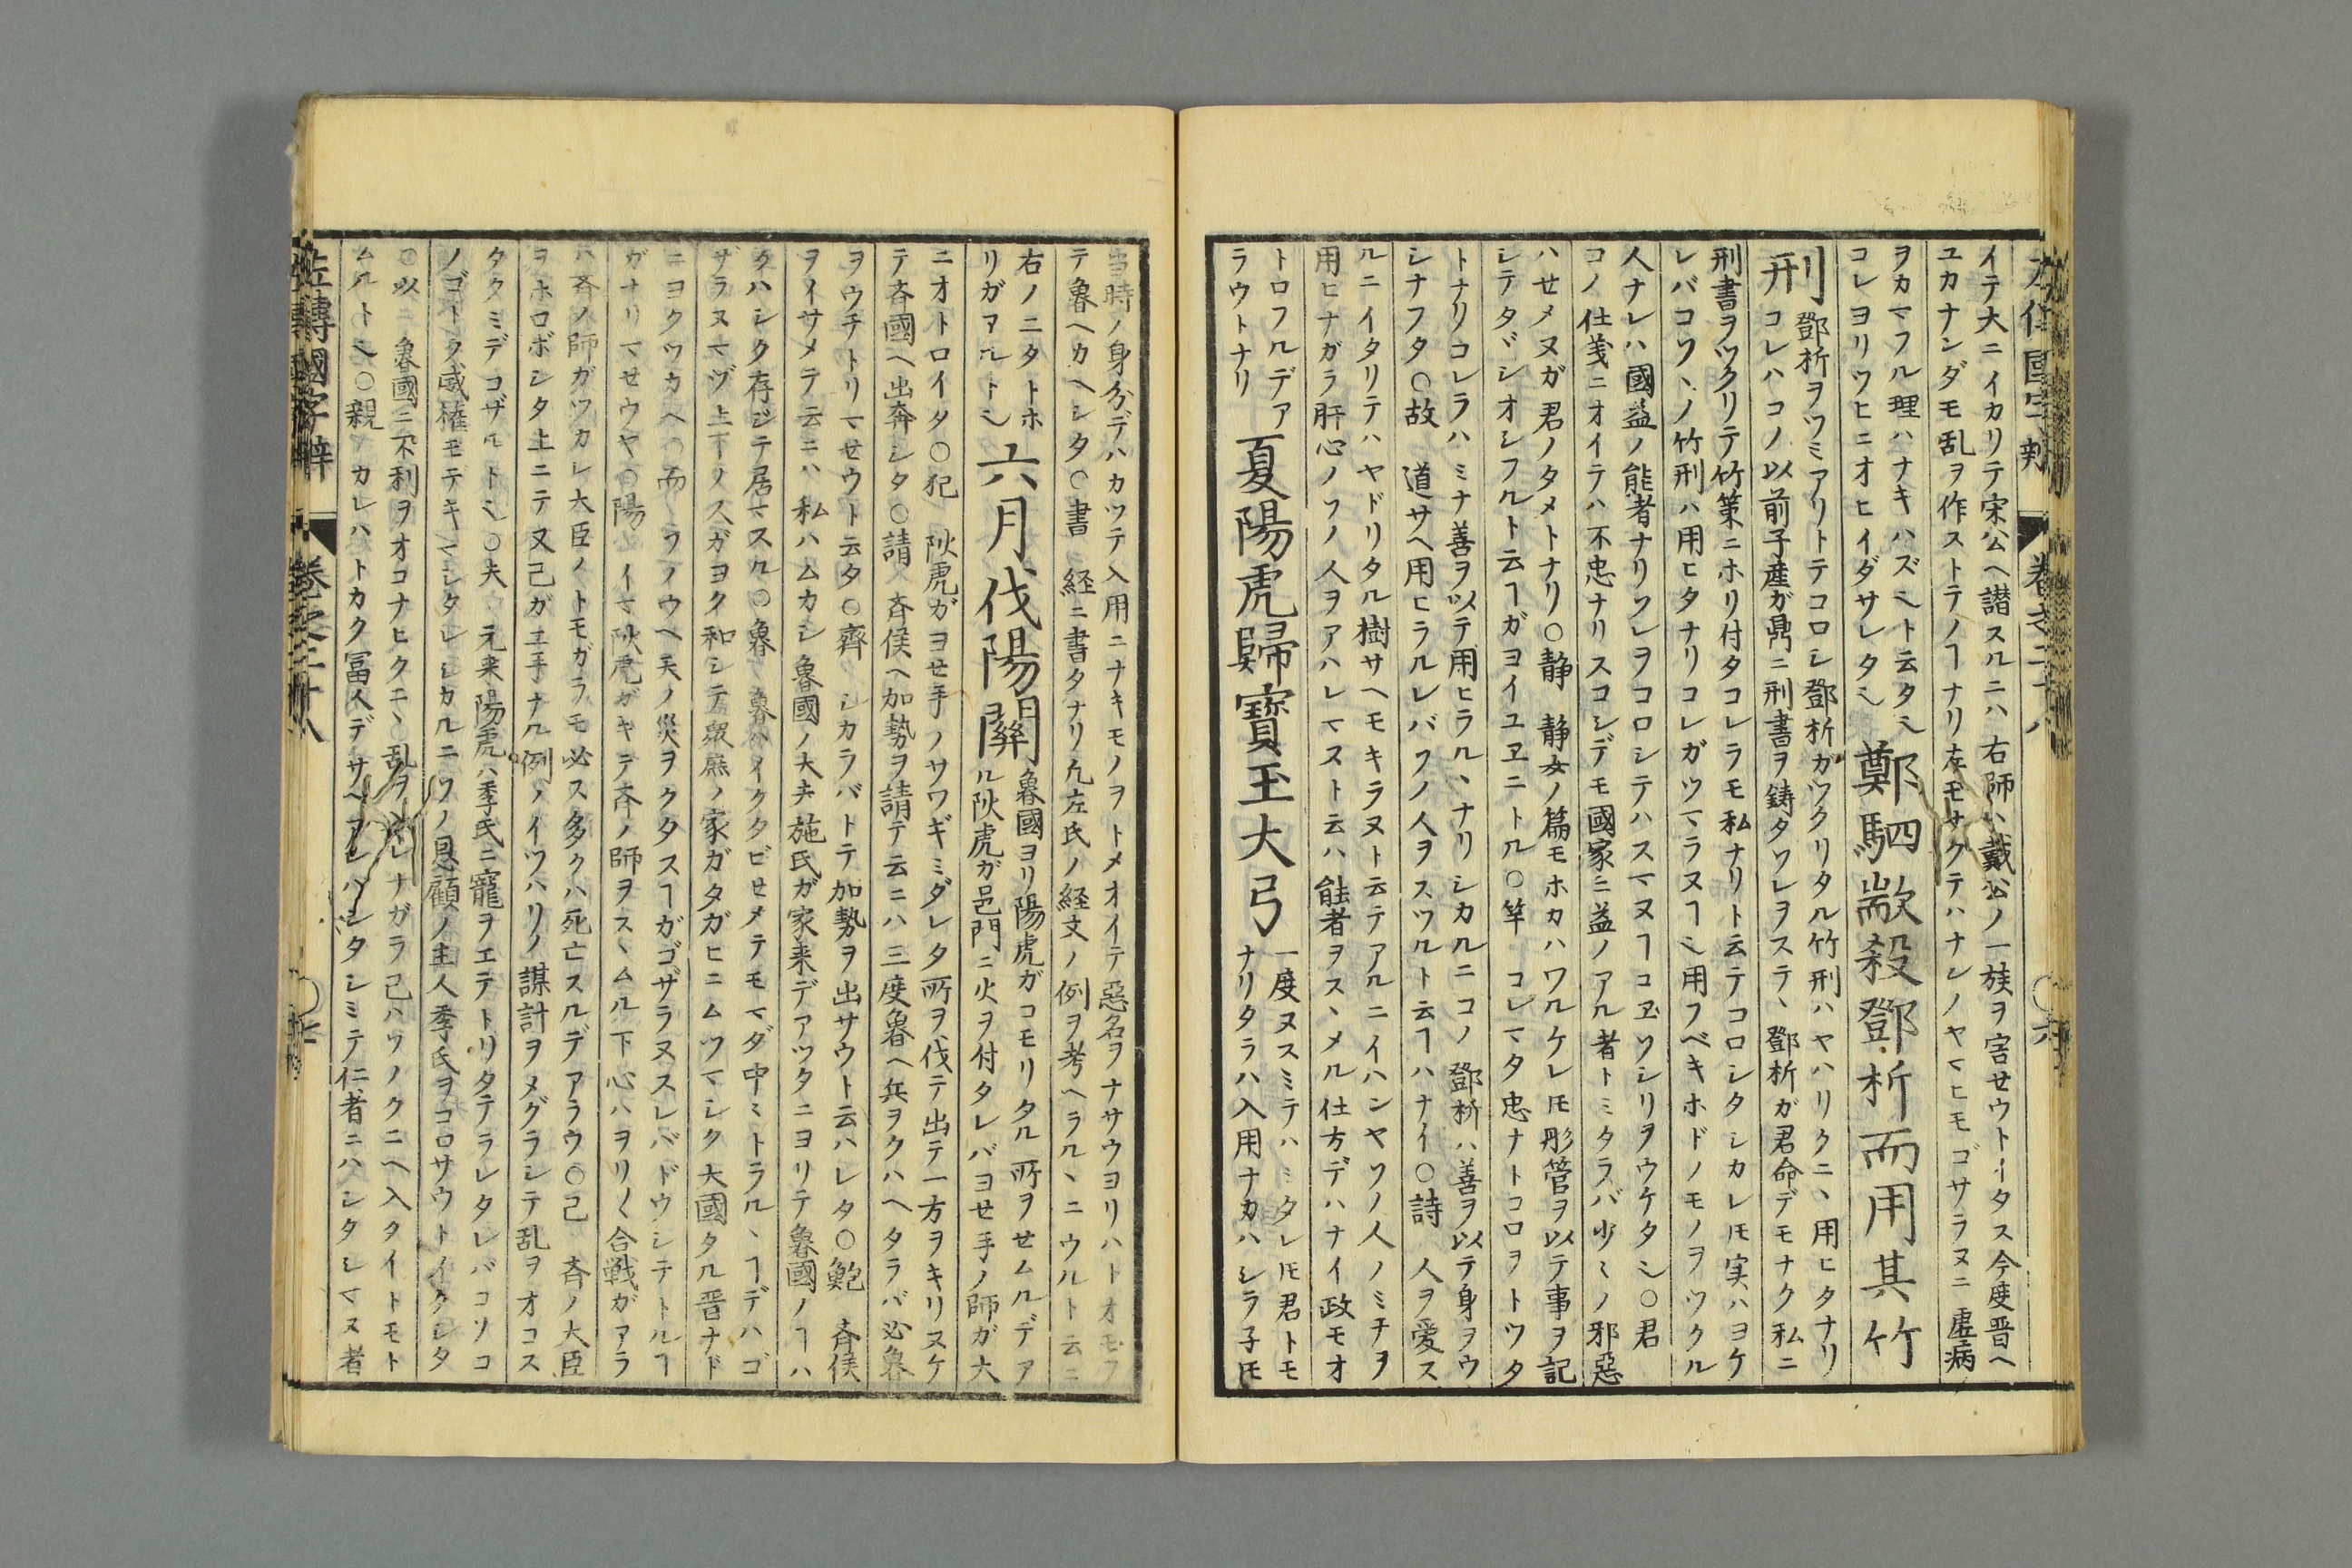 イテ大ニイカリテ宋公ヘ譖スルニハ右師ハ戴公ノ一族ヲ害せウトイタス今度晋ヘ
ユカナンダモ乱ヲ作ストテノヿナリ左モサクテハナレノヤマヒモゴサラヌニ虚病
ヲカマフル理ハナキハズ〻ト云タ〻
コレヨリツヒニオヒイダサレタ〻
鄭駟歂殺鄧析而用其竹
刑
鄧析ヲツミアリトテコロシ鄧析カツクリタル竹刑ハヤハリクニヽ用ヒタナリ
コレハコノ以前子産ガ鼎ニ刑書ヲ鋳タソレヲステヽ鄧析ガ君命デモナク私ニ
刑書ヲツクリテ竹策ニホリ付タコレラモ私ナリト云テコロシタシカレ𪜈実ハヨケ
レバコソヽノ竹刑ハ用ヒタナリコレガツマラヌヿ〻用フベキホドノモノヲツクル
人ナレハ國益ノ能者ナリソレヲコロシテハスマヌヿコヱソシリヲウケタ〻○君
コノ仕義ニオイテハ不忠ナリスコシデモ國家ニ益ノアル者トミタラバ少〻ノ邪惡
ハせメヌガ君ノタメトナリ○静 静女ノ篇モホカハワルケレ𪜈彤管ヲ以テ事ヲ記
シテタヾシオシフルト云ヿガヨイユヱニトル○竿 コレマタ忠ナトコロヲトツタ
トナリコレラハミナ善ヲ以テ用ヒラルヽナリシカルニコノ鄧析ハ善ヲ以テ身ヲウ
シナフタ○故 道サヘ用ヒラルレバソノ人ヲスツルト云ヿハナイ○詩 人ヲ愛ス
ルニイタリテハヤドリタル樹サヘモキラヌト云テアルニイハンヤソノ人ノミチヲ
用ヒナガラ肝心ノソノ人ヲアハレマスト云ハ能者ヲスヽメル仕方デハナイ政モオ
トロフルデア
ラウトナリ
夏陽虎歸寶玉大弓
一度ヌスミテハミタレ𪜈君トモ
ナリタラハ入用ナカハシラ子𪜈
當時ノ身分デハカツテ入用ニナキモノヲトメオイテ惡名ヲナサウヨリハトオモフ
テ魯ヘカヘシタ○書 経ニ書タナリ凡左氏ノ経文ノ例ヲ考ヘラルヽニウルト云ニ
右ノ二タトホ
リガアルト〻
六月伐陽關
魯國ヨリ陽虎ガコモリタル所ヲせムルデア
ル陽虎ガ邑門ニ火ヲ付タレバヨせ手ノ師ガ大
ニオトロイタ○犯 陽虎ガヨせ手ノサワギミダレタ所ヲ伐テ出テ一方ヲキリヌケ
テ斉國ヘ出奔シタ○請 斉侯ヘ加勢ヲ請テ云ニハ三度魯ヘ兵ヲクハヘタラバ必魯
ヲウチトリマせウト云タ○齊 シカラバトテ加勢ヲ出サウト云ハレタ○鮑 斉侯
ヲイサメテ云ニハ私ハムカシ魯國ノ大夫施氏ガ家来デアツタニヨリテ魯國ノヿハ
クハシク存ジテ居マスル○魯 魯ハイクタビせメテモマダ中〻トラルヽヿデハゴ
ザラヌマヅ上下ノ人ガヨク和シテ衆庶ノ家ガタガヒニムツマシク大國タル晋ナド
ニヨクツカヘ○而 ソノウヘ天ノ災ヲクタスヿガゴザラヌスレバドウシテトルヿ
ガナリマせウヤ○陽 イマ陽虎ガキテ斉ノ師ヲスヽムル下心ハヲリ〱合戦ガアラ
ハ斉ノ師ガツカレ大臣ノトモガラモ必ス多クハ死亡スルデアラウ○己 斉ノ大臣
ヲホロボシタ上ニテ又己ガエ手ナル例ノイツハリノ謀計ヲメグラシテ乱ヲオコス
タクミデコザルト〻○夫 元来陽虎ハ季氏ニ寵ヲエテトリタテラレタレバコソコ
ノゴトク威權モデキマシタレシカルニソノ恩顧ノ主人季氏ヲコロサウトイタシタ
○以 魯國ニ不利ヲオコナヒクニヽ乱ヲシレナガラ己ハソノクニヘ入タイトモト
ムルト〻○親 カレハトカク冨人デサヘアレハシタシミテ仁者ニハシタシマヌ者
左傳國字辯 卷之二十八